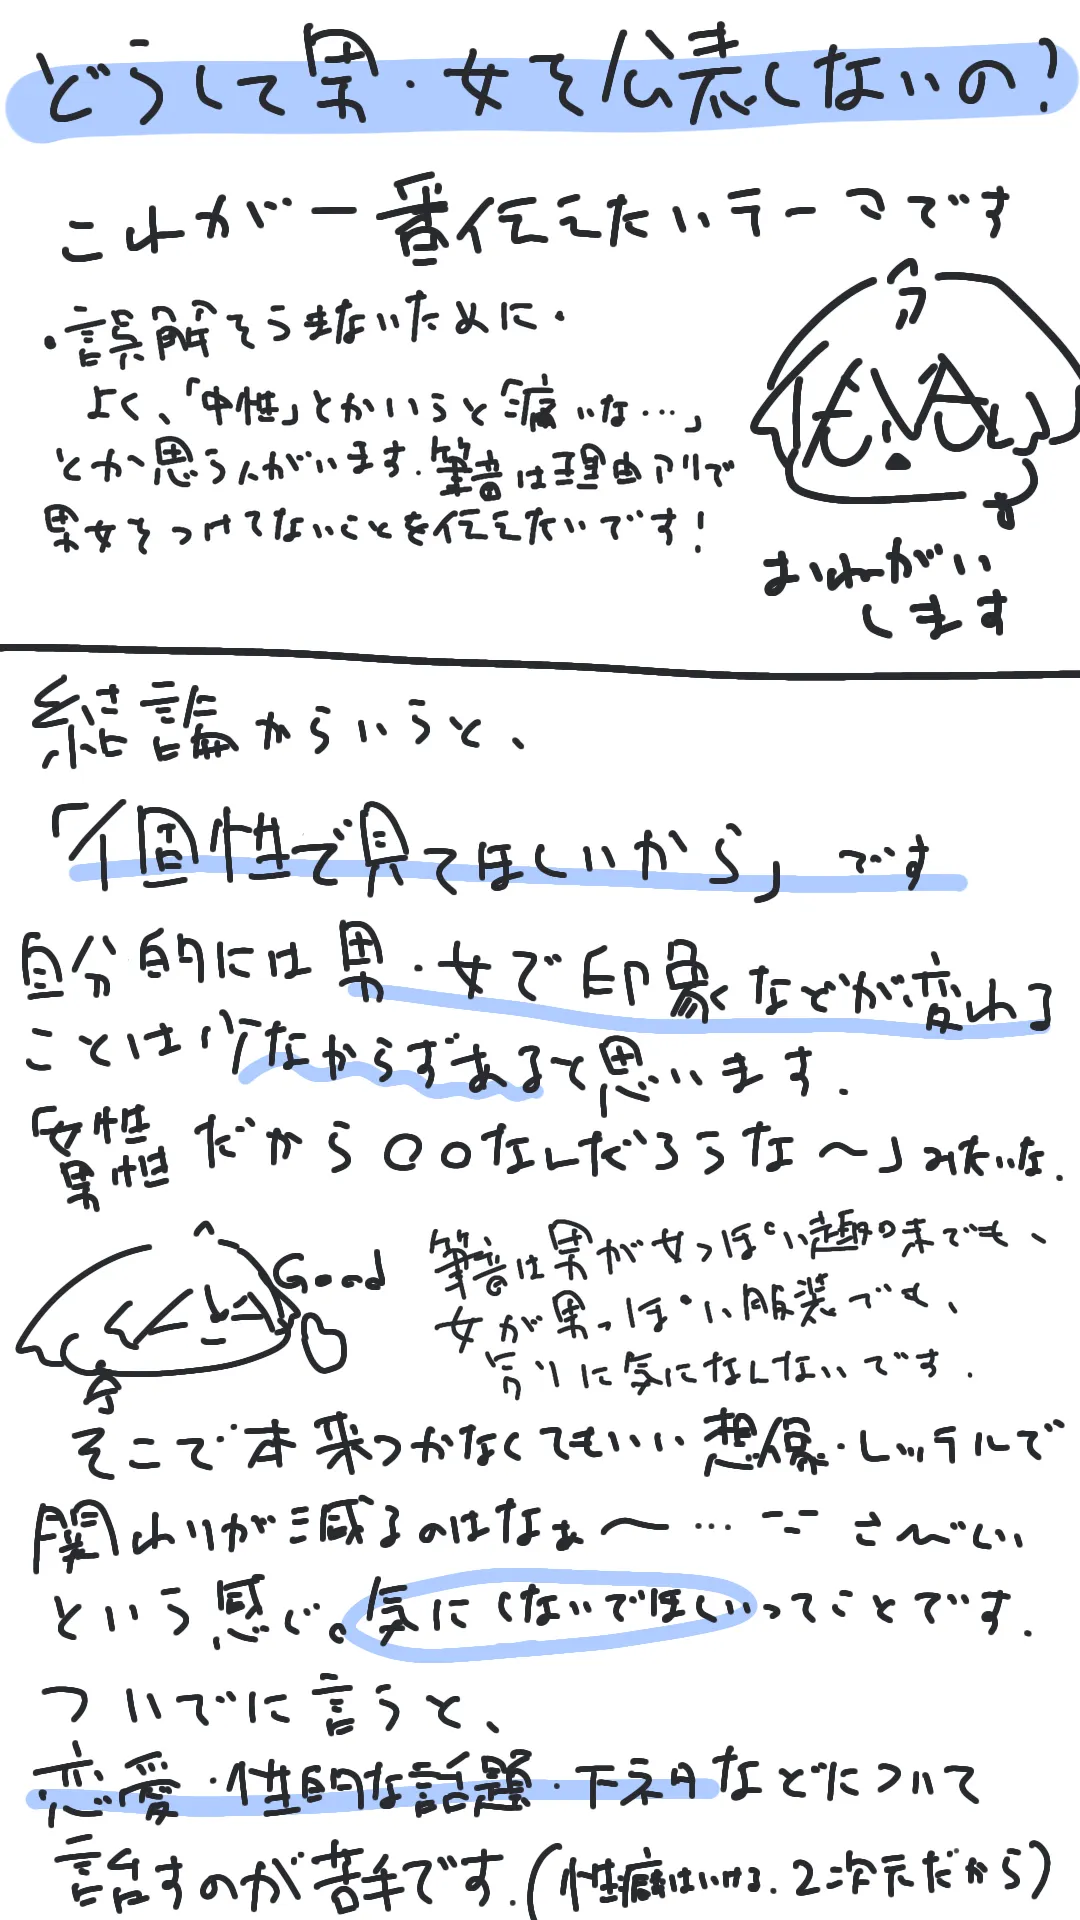 どうして男・女を公表しないの?
これが一番伝えたいテーマです
・誤解をうまないために・
よく、「中性」とかいうと「痛いな…」
とか思う人がいます.筆者は理由アリで
男女をつけてないことを伝えたいです!
おねがい
します
結論からいうと、
「個性で見てほしいから」です
自分的には男・女で印象などが変わる
ことは少なからずあると思います.
「女性 男性 だから○○なんだろうな〜」みたいな.
Good
筆者は男が女っぽい趣味でも、
女が男っぽい服装でも、
別に気になんしないです.
そこで本来つかなくてもいい想像・レッテルで
関わりが減るのはなぁ〜… さびしい
という感じ。気にしないでほしいってことです.
ついでに言うと、
恋愛・性的な話題・下ネタなどについて
話すのが苦手です.(性癖はいける.2次元だから)